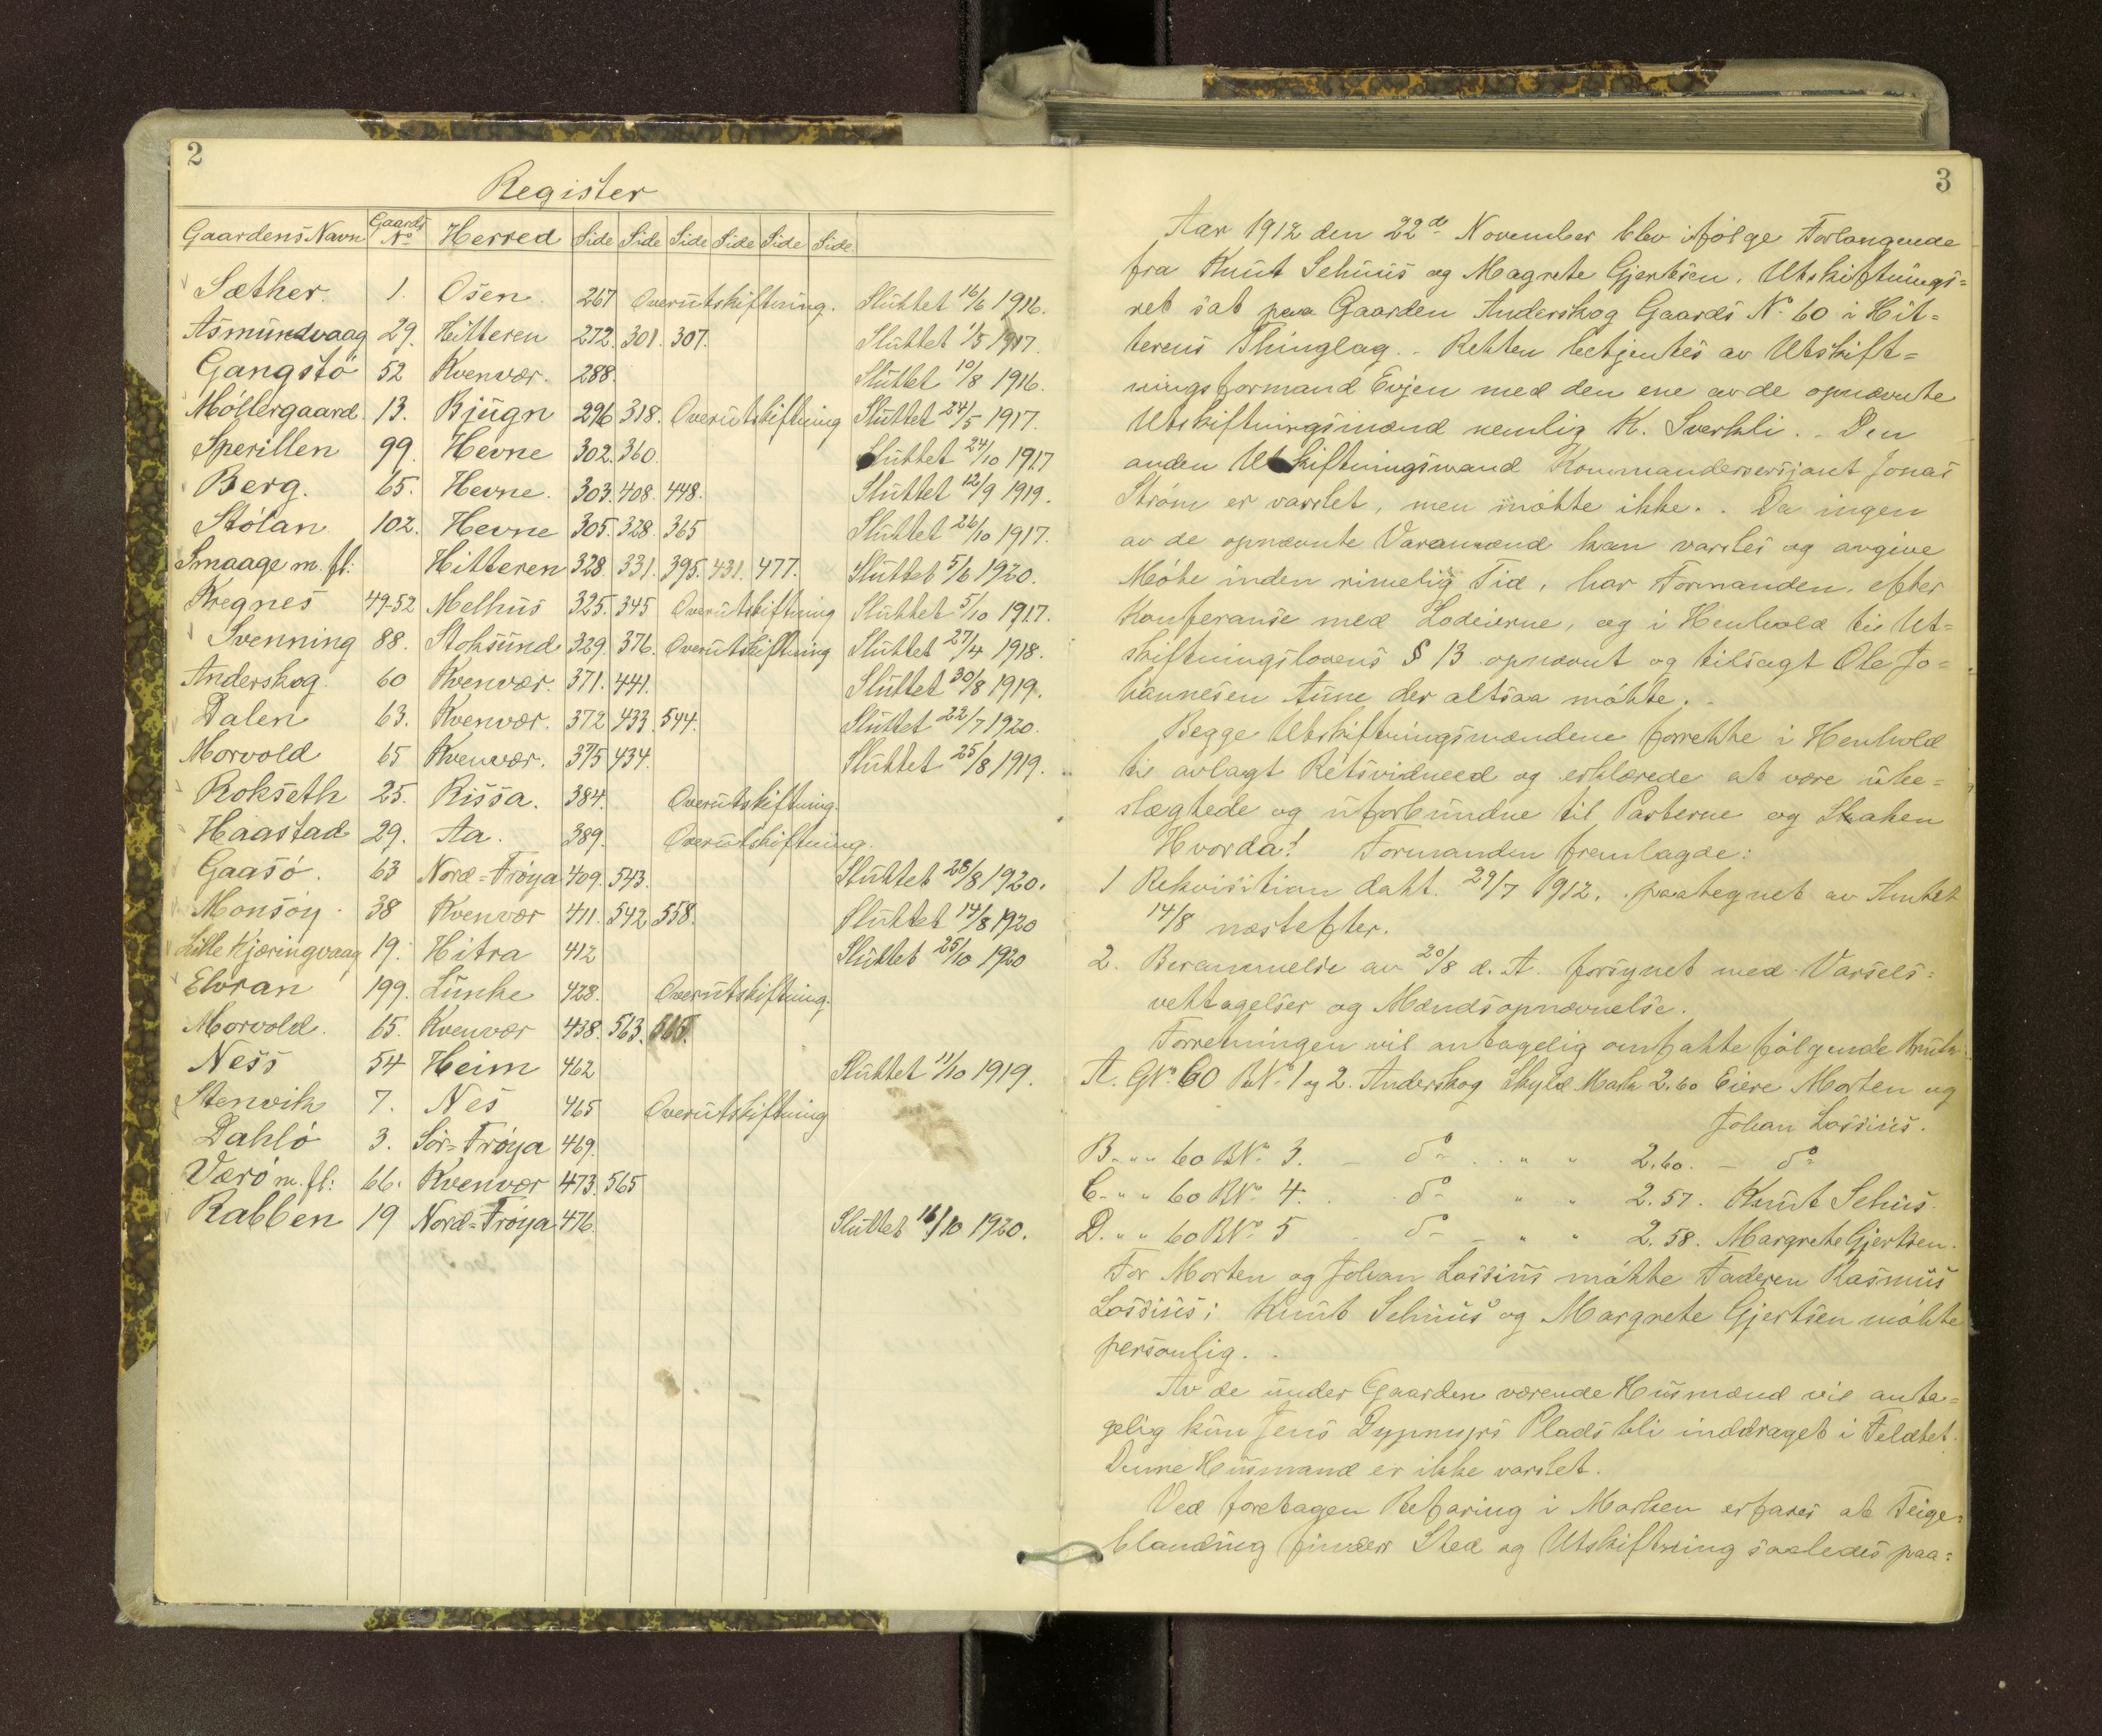 2
Register
Gaardens Navn Gaards No Herred Side Side Side Side Side Side
Sæther. 1. Osen. 267 Overutskiftning. Sluttet 16/6 1916.
Asmundvaag 29. Hitteren 272. 301. 307. Sluttet 1/5 1917.
Gangstø 52 Kvenvær. 288. Sluttet 10/8 1916.
Møllergaard 13. Bjugn 296 318. Overutskiftning Sluttet 24/5 1917.
Sperillen 99. Hevne 302. 360. Sluttet 24/10 1917
Berg. 65. Hevne. 303. 408. 448. Sluttet 12/9 1919.
Stølan 102. Hevne 305. 328. 365 Sluttet 26/10 1917.
Smaage m. fl: Hitteren 328. 331. 395. 431. 477. Sluttet 5/6 1920.
Kregnes 49-52 Melhus 325. 345 Overutskiftning Sluttet 5/10 1917.
Svenning 88. Stoksund 329. 376. Overutskiftning Sluttet 27/4 1918.
Anderskog. 60 Kvenvær. 371. 441. Sluttet 30/8 1919.
Dalen 63. Kvenvær. 372 433. 544. Sluttet 22/7 1920.
Morvold 65 Kvenvær. 375 434. Sluttet 25/8 1919.
Rokseth 25. Rissa. 384. Overutskiftning.
Haastad 29. Aa. 389. Overutskiftning.
Gaasø. 63 Nord=Frøya 409. 543. Sluttet 28/8 1920.
Monsøy. 38 Kvenvær 411. 542 558. Sluttet 14/8 1920
Lille Kjæringvaag 19. Hitra 412 Sluttet 25/10 1920
Elvran 199. Lunke 428. Overutskiftning.
Morvold. 65. Kvenvær 438. 563. 565.
Ness 54 Heim 462 Sluttet 11/10 1919.
Stenvik 7. Nes 465 Overutskiftning
Dahlø 3. Sør=Frøya 469.
Værø m. fl: 66. Kvenvær 473. 565
Rabben 19 Nord=Frøya 476. Sluttet 16/10 1920.
3
Aar 1912 den 22de November blev ifølge Forlangende
fra Knut Sehuus og Magrete Gjertsen. Utskiftnings=
ret sat paa Gaarden Anderskog Gaards No 60 i Hit=
terens Thinglag. Retten betjentes av Utskift=
ningsformand Evjen med den ene av de opnævnte
Utskiftningsmænd nemlig K. Sverkli. Den
anden Utskiftningsmand Kommandersersjant Jonas
Strøm er varslet, men møtte ikke. Da ingen
av de opnævnte Varamænd kan varsles og avgive
Møte inden rimelig Tid, har Formanden, efter
Konferanse med Lodeierne, og i Henhold til Ut=
skiftningslovens § 13 opnævnt og tilsagt Ole Jo=
hannesen Aune der altsaa møtte.
Begge Utskiftningsmændene forrette i Henhold
til avlagt Retsvidneed og erklærede at være ube=
slægtede og uforbundne til Parterne og Saken
Hvorda! Formanden fremlagde:
1 Rekvisition datt. 29/7 1912. paategnet av Amtet
14/8 næstefter.
2. Berammelse av 20/8 d. A. forsynet med Varsels=
vettagelser og Mændsopnævnelse.
Forretningen vil antagelig omfatte følgende Bruk:
A. GNo. 60 BNo. 1 og 2. Anderskog Skyld Mark 2.60 Eiere Morten og
Johan Lossius.
B. " " 60 BNo. 3. - do - " " 2.60. - do
C. " " 60 BNo. 4. - do - " " 2.57. Knut Sehus.
D. " " 60 BNo. 5 - do - " " 2.58. Margrete Gjertsen.
For Morten og Johan Lossius møtte Faderen Rasmus
Lossius; Knut Sehuus og Margrete Gjertsen møtte
personlig.
Av de under Gaarden værende Husmænd vil anta=
gelig kun Jens Dypmyrs Plads bli inddraget i Feldtet.
Denne Husmand er ikke varslet.
Ved foretagen Befaring i Marken erfares at Teige=
blanding finder Sted og Utskiftning saaledes paa=